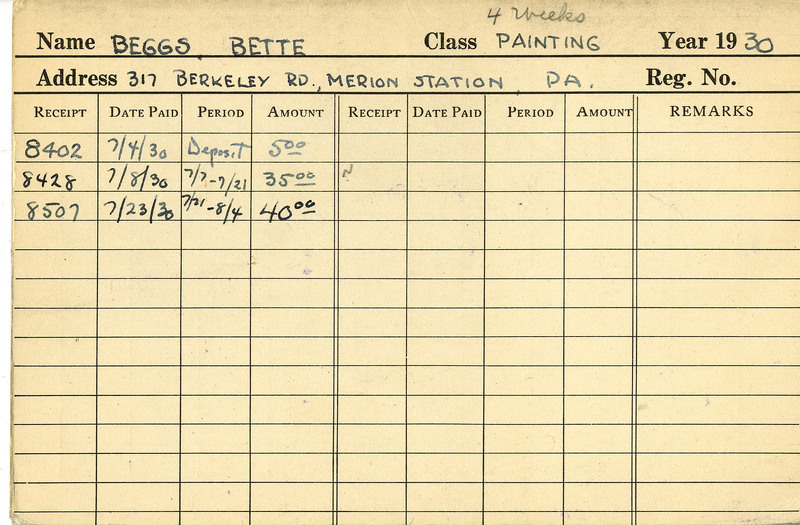 4 Weeks
Name BEGGS, BETTE Class PAINTING Year 19 30
Address 317 BERKELEY RD., MERION STATION, PA. Reg. No.
RECEIPT DATE PAID PERIOD AMOUNT RECEIPT DATE PAID PERIOD AMOUNT REMARKS
8402 7/4/30 Deposit 5 00
8428 7/8/30 7/7-7/21 35 00 N
8507 7/23/30 7/21-8/4 40 00